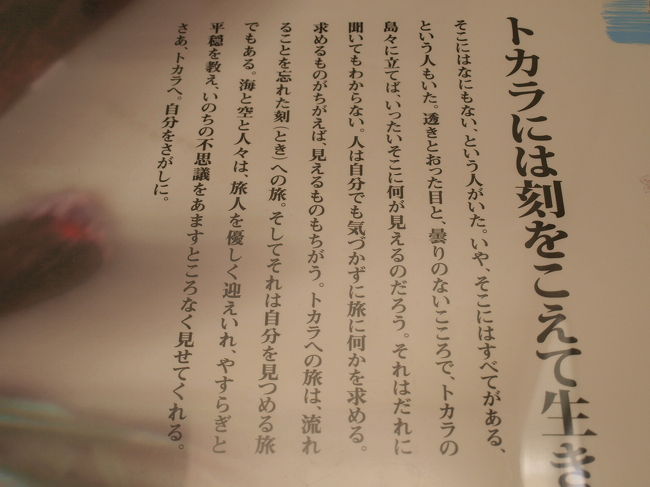 トカラには刻をこえて生き
そこにはなにもない、という人がいた。いや、そこにはすべてがある、
という人もいた。透きとおった目と、曇りのないこころで、トカラの
島々に立てば、いったいそこに何が見えるのだろう。それはだれに
聞いてもわからない。人は自分でも気づかずに旅に何かを求める。
求めるものがちがえば、見えるものもちがう。トカラへの旅は、流れ
ることを忘れた刻(とき)への旅。そしてそれは自分を見つめる旅
でもある。海と空と人々は、旅人を優しく迎えいれ、やすらぎと
平穏を教え、いのちの不思議をあますところなく見せてくれる。
さあ、トカラへ。自分をさがしに。